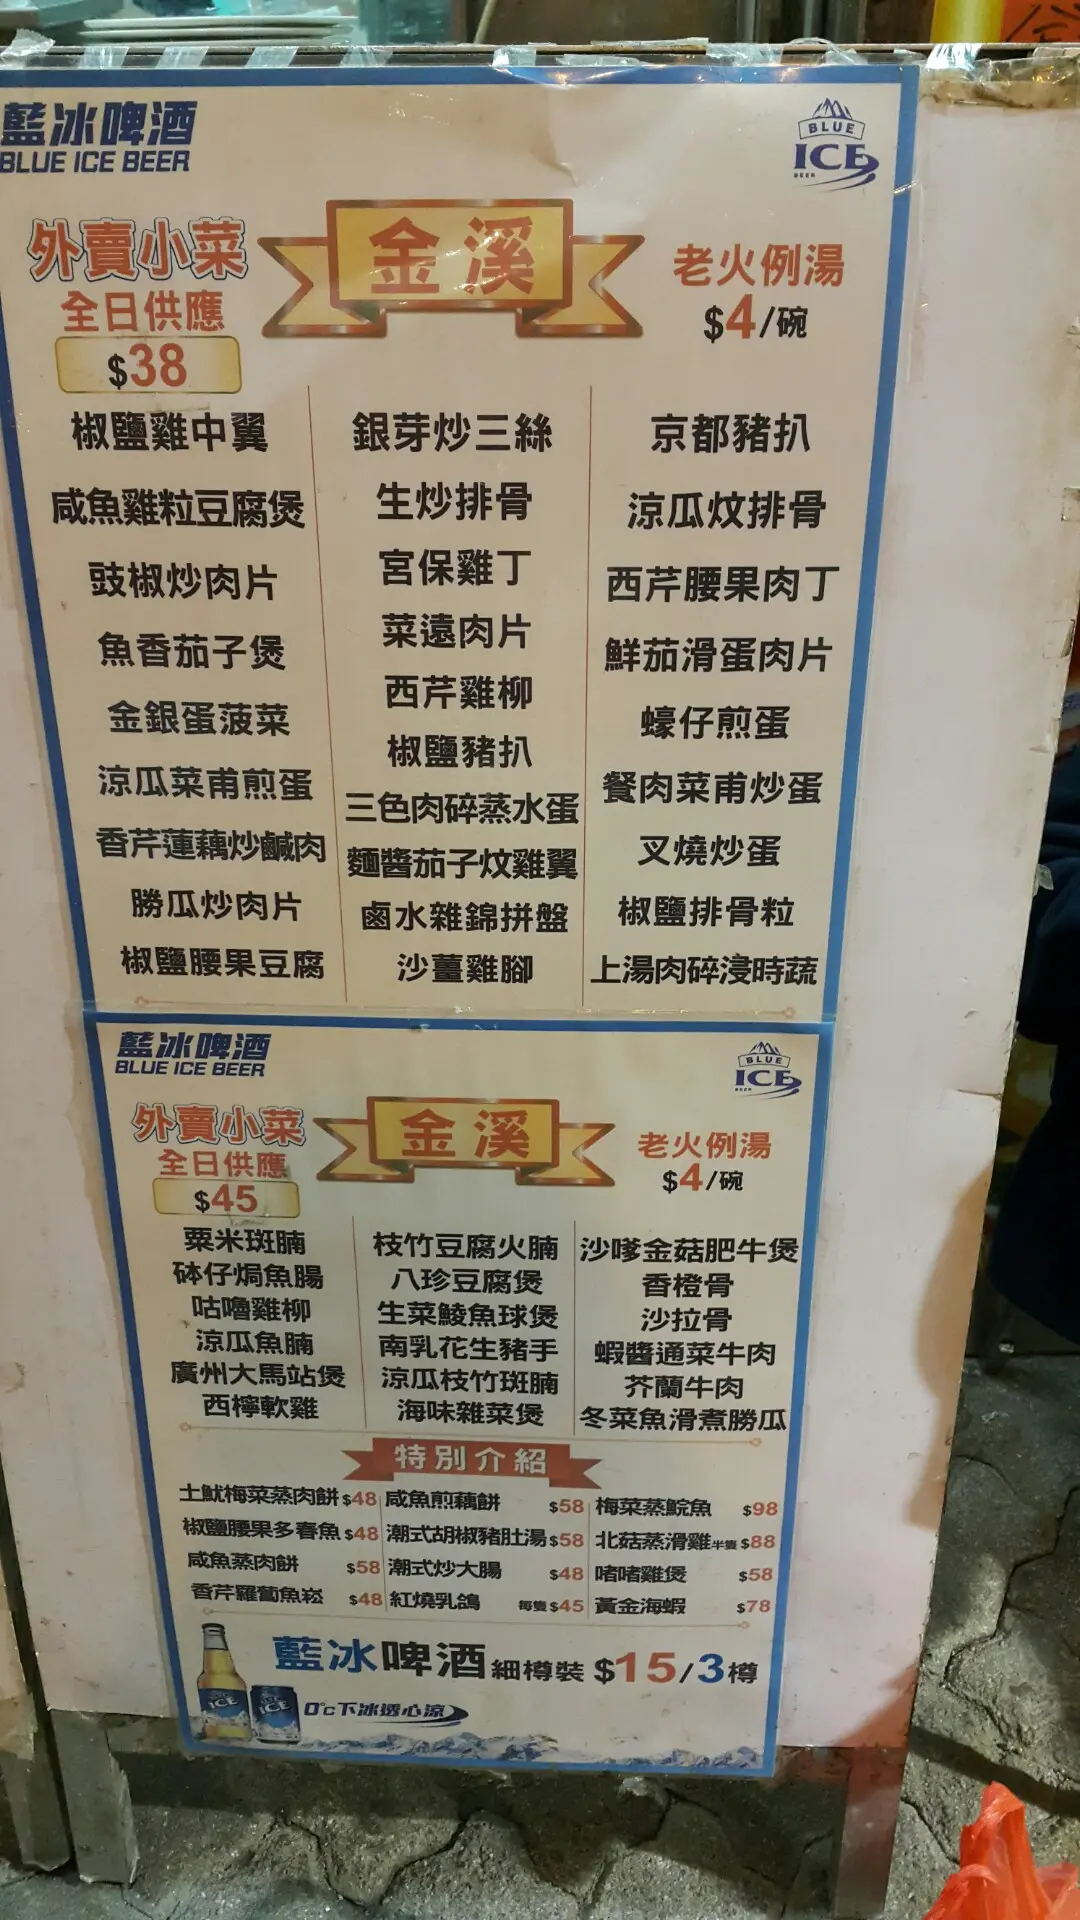 藍冰啤酒
BLUE ICE BEER
BLUE
ICE
BEER
外賣小菜
全日供應
$38
金溪
老火例湯
$4/碗
椒鹽雞中翼
咸魚雞粒豆腐煲
豉椒炒肉片
魚香茄子煲
金銀蛋菠菜
涼瓜菜甫煎蛋
香芹蓮藕炒鹹肉
勝瓜炒肉片
椒鹽腰果豆腐
銀芽炒三絲
生炒排骨
宮保雞丁
菜遠肉片
西芹雞柳
椒鹽豬扒
三色肉碎蒸水蛋
麵醬茄子炆雞翼
鹵水雜錦拼盤
沙薑雞腳
京都豬扒
涼瓜炆排骨
西芹腰果肉丁
鮮茄滑蛋肉片
蠔仔煎蛋
餐肉菜甫炒蛋
叉燒炒蛋
椒鹽排骨粒
上湯肉碎浸時蔬
藍冰啤酒
BLUE ICE BEER
BLUE
ICE
BEER
外賣小菜
全日供應
$45
金溪
老火例湯
$4/碗
粟米斑腩
砵仔焗魚腸
咕嚕雞柳
涼瓜魚腩
廣州大馬站煲
西檸軟雞
枝竹豆腐火腩
八珍豆腐煲
生菜鯪魚球煲
南乳花生豬手
涼瓜枝竹斑腩
海味雜菜煲
沙嗲金菇肥牛煲
香橙骨
沙拉骨
蝦醬通菜牛肉
芥蘭牛肉
冬菜魚滑煮勝瓜
特別介紹
土魷梅菜蒸肉餅 $48
椒鹽腰果多春魚 $48
咸魚蒸肉餅 $58
香芹羅蔔魚崧 $48
咸魚煎藕餅 $58
潮式胡椒豬肚湯 $58
潮式炒大腸 $48
紅燒乳鴿 每隻 $45
梅菜蒸鯇魚 $98
北菇蒸滑雞 半隻 $88
啫啫雞煲 $58
黃金海蝦 $78
藍冰啤酒 細樽裝 $15/3樽
ICE
ICE
0℃下冰透心涼